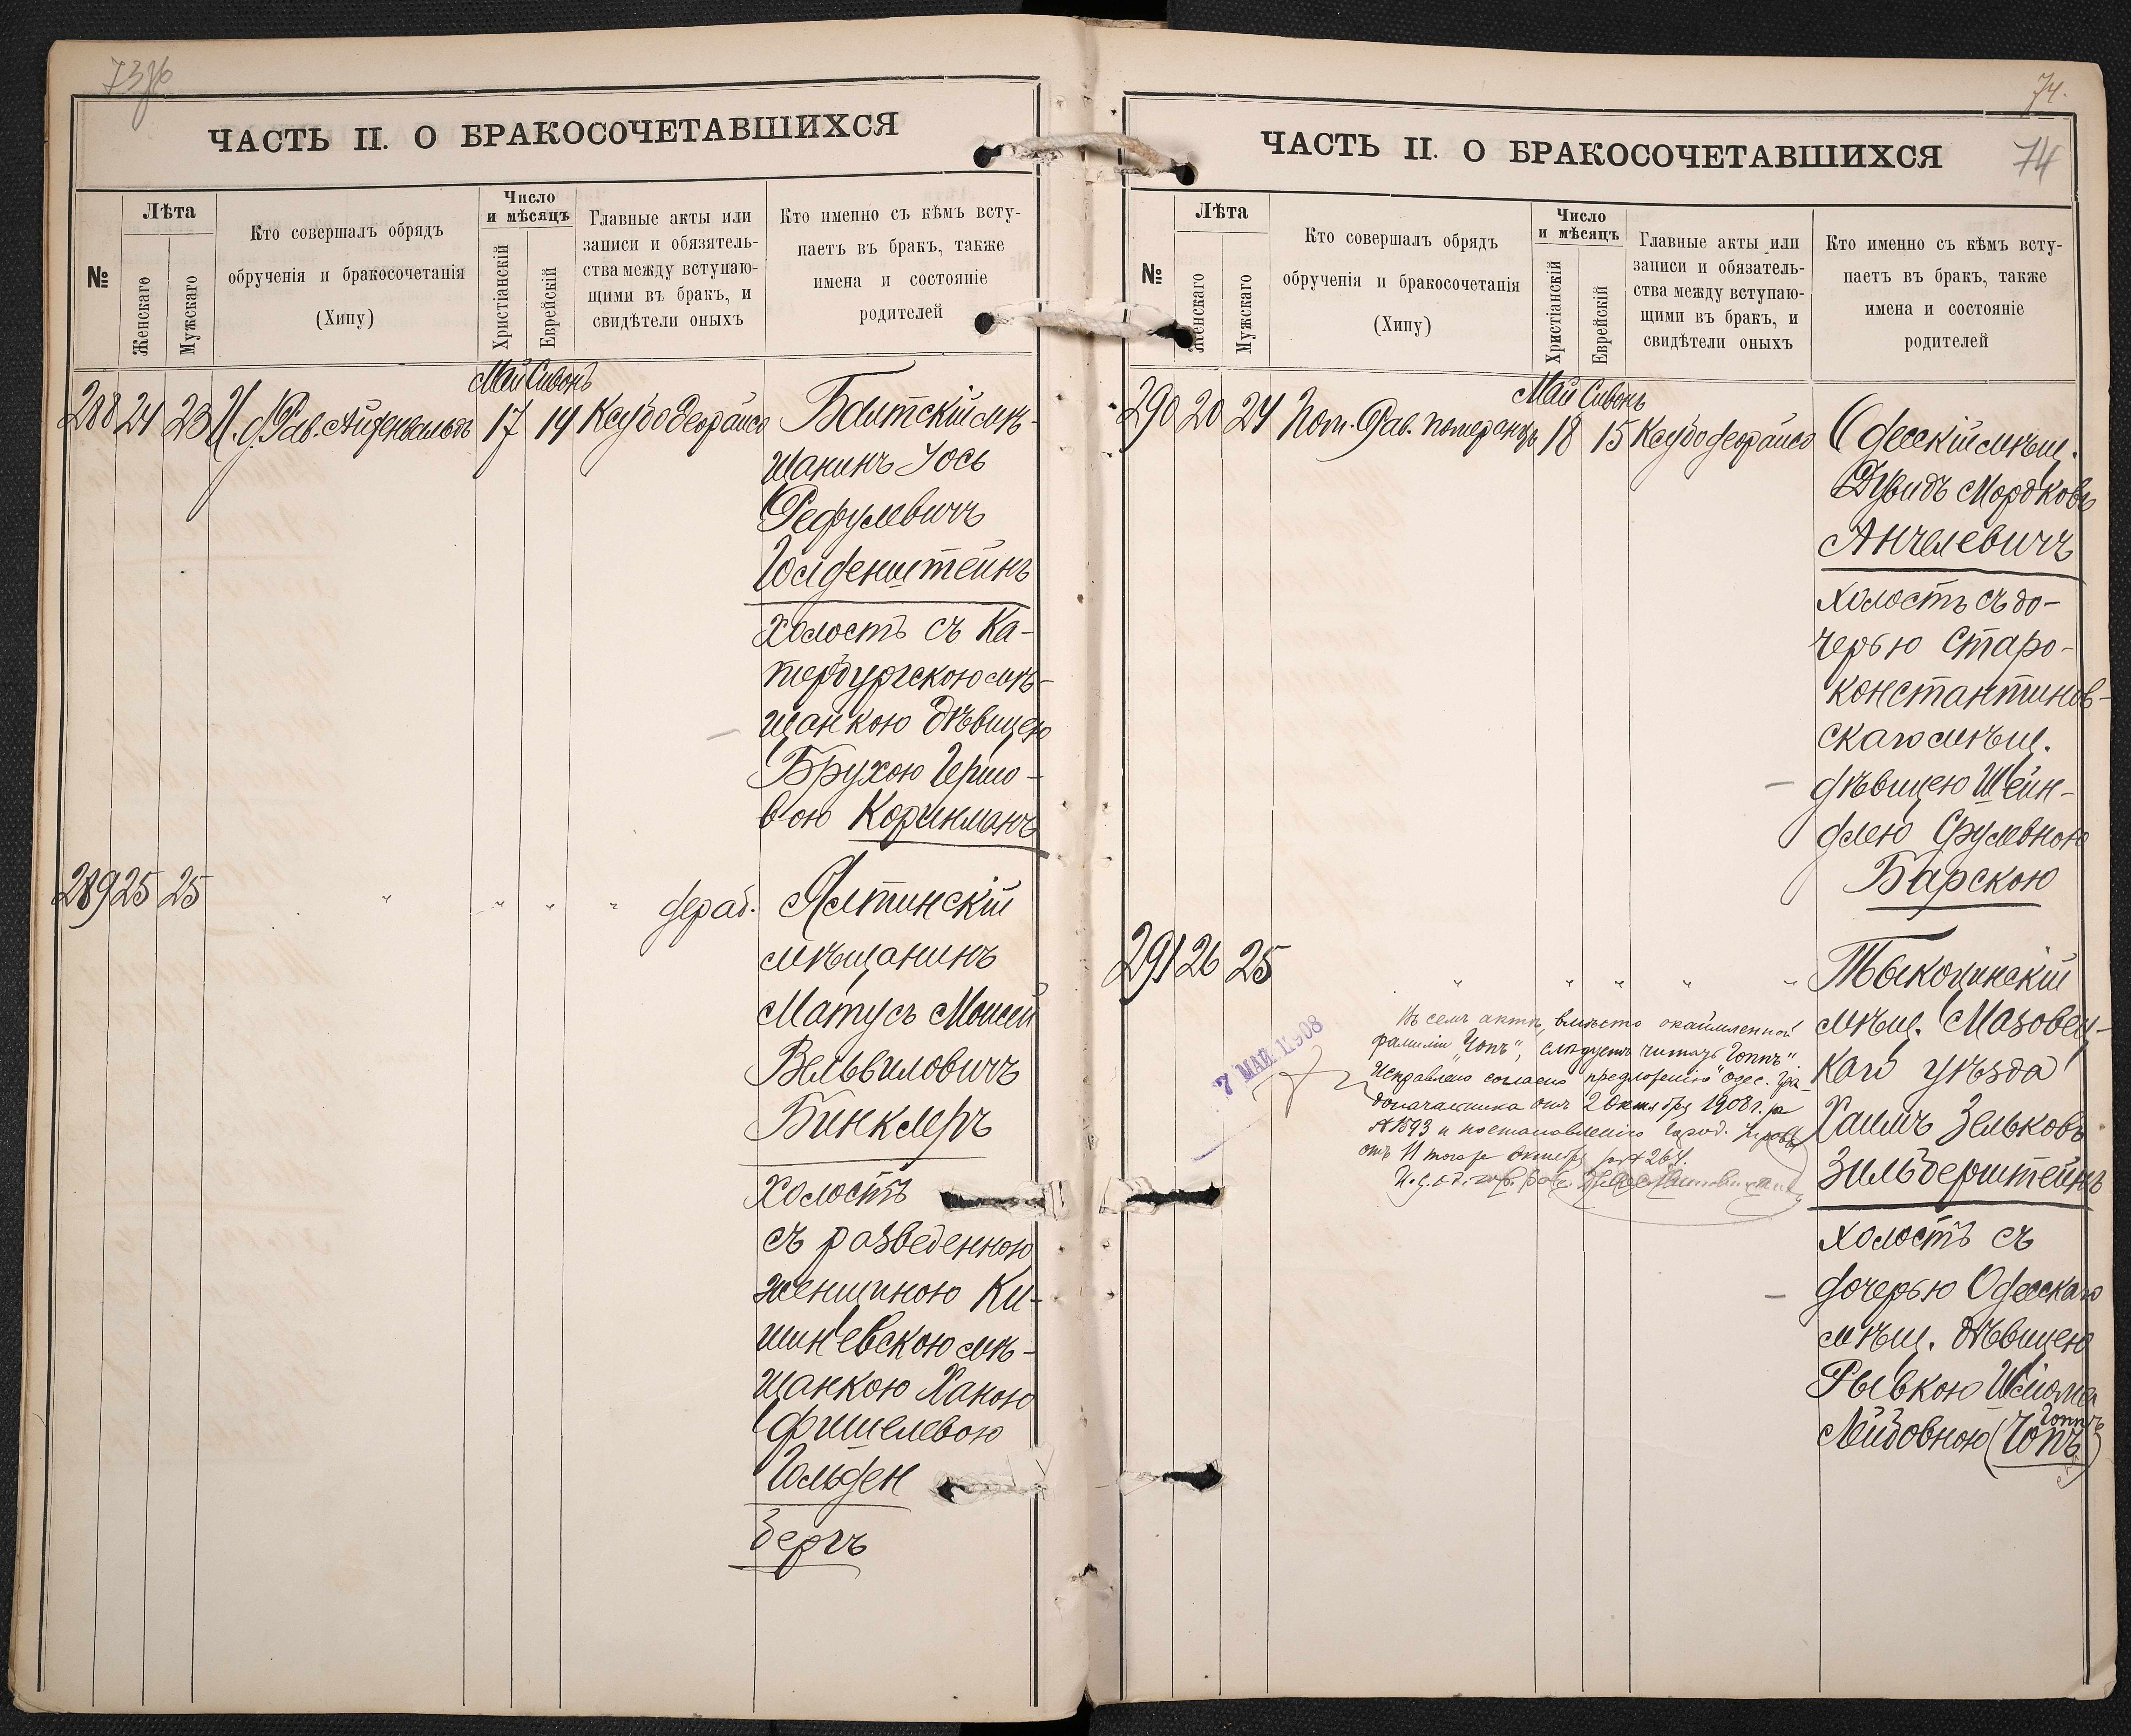 73об
ЧАСТЬ II. О БРАКОСОЧЕТАВШИХСЯ
№
Лѣта
Женскаго
Мужскаго
Кто совершалъ обрядъ
обрученія и бракосочетанія
(Хипу)
Число
и мѣсяцъ
Христіанскій
Еврейскій
Главные акты или
записи и обязятель-
ства между вступаю-
щими въ бракъ, и
свидѣтели оныхъ
Кто именно съ кѣмъ всту-
паетъ въ бракъ, также
имена и состояніе
родителей
Май Сивонъ
288 24 23 И. д. Рав. Айзенвальдъ 17 14 Ксубо деорайсо Балтскій мѣ-
щанинъ Іось
Рефулевичъ
Голденштейнъ
холостъ съ Ка-
тербургскою мѣ-
щанкою дѣвицею
Брухою Гершо-
вою Коринманъ
289 25 25 " " " " дераб. Ялтинскій
мѣщанинъ
Матусъ Моисей
Вельвиловичъ
Бинклеръ
холостъ
съ разведенною
женщиною Ки-
шиневскою мѣ-
щанкою Ханою
Фишелевою
Гольден
бергъ
74.
74
ЧАСТЬ II. О БРАКОСОЧЕТАВШИХСЯ
№
Лѣта
Женскаго
Мужскаго
Кто совершалъ обрядъ
обрученія и бракосочетанія
(Хипу)
Число
и мѣсяцъ
Христіанскій
Еврейскій
Главные акты или
записи и обязатель-
ства между вступаю-
щими въ бракъ, и
свидѣтели оныхъ
Кто именно съ кѣмъ всту-
паетъ въ бракъ, также
имена и состояніе
родителей
Май Сивонъ
290 20 24 Пом. Рав. Померанцъ 18 15 Ксубо деорайсо Одесскій мѣщ.
Дувидъ Мордковъ
Анчелевичъ
холостъ съ до-
черью Старо-
константинов-
скаго мѣщ.
дѣвицею Шейн-
длею Срулевною
Барскою
291 26 25 " " " " " Тыкоцинскій
мѣщ. Мазовец-
каго уѣзда
Хаимъ Зельковъ
Зильберштейнъ
холостъ съ
дочерью Одесскаго
мѣщ. дѣвицею
Рывкою Шліома
Лейбовною (Гопъ)
Гоппъ
7 МАЙ 1908
Въ семъ актѣ, вмѣсто окаймленной
фамиліи "Гопъ", слѣдуетъ читать "Гоппъ"
Исправлено согласно предложенію Одес. Гра-
доначальника отъ 2 Октября 1908 г. за
№ 1593 и постановленію Город. Управы
отъ 11 того же Октября за № 264.